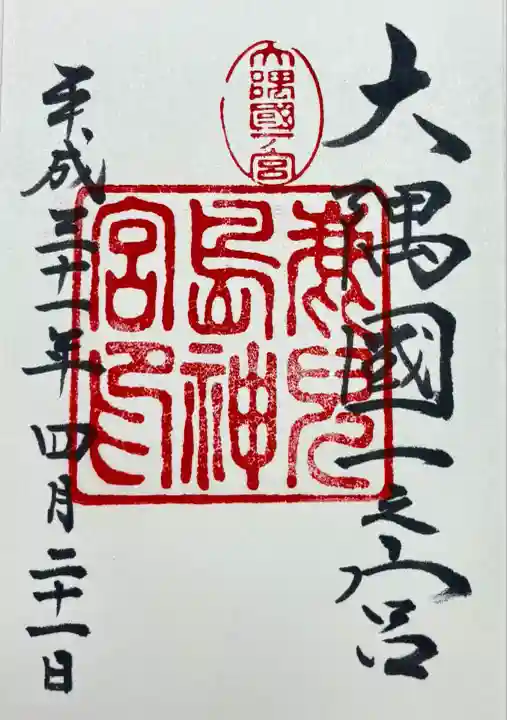 大隅國一之宮
大隅國一ノ宮
鹿兒
島神
宮印
平成三十一年四月二十一日